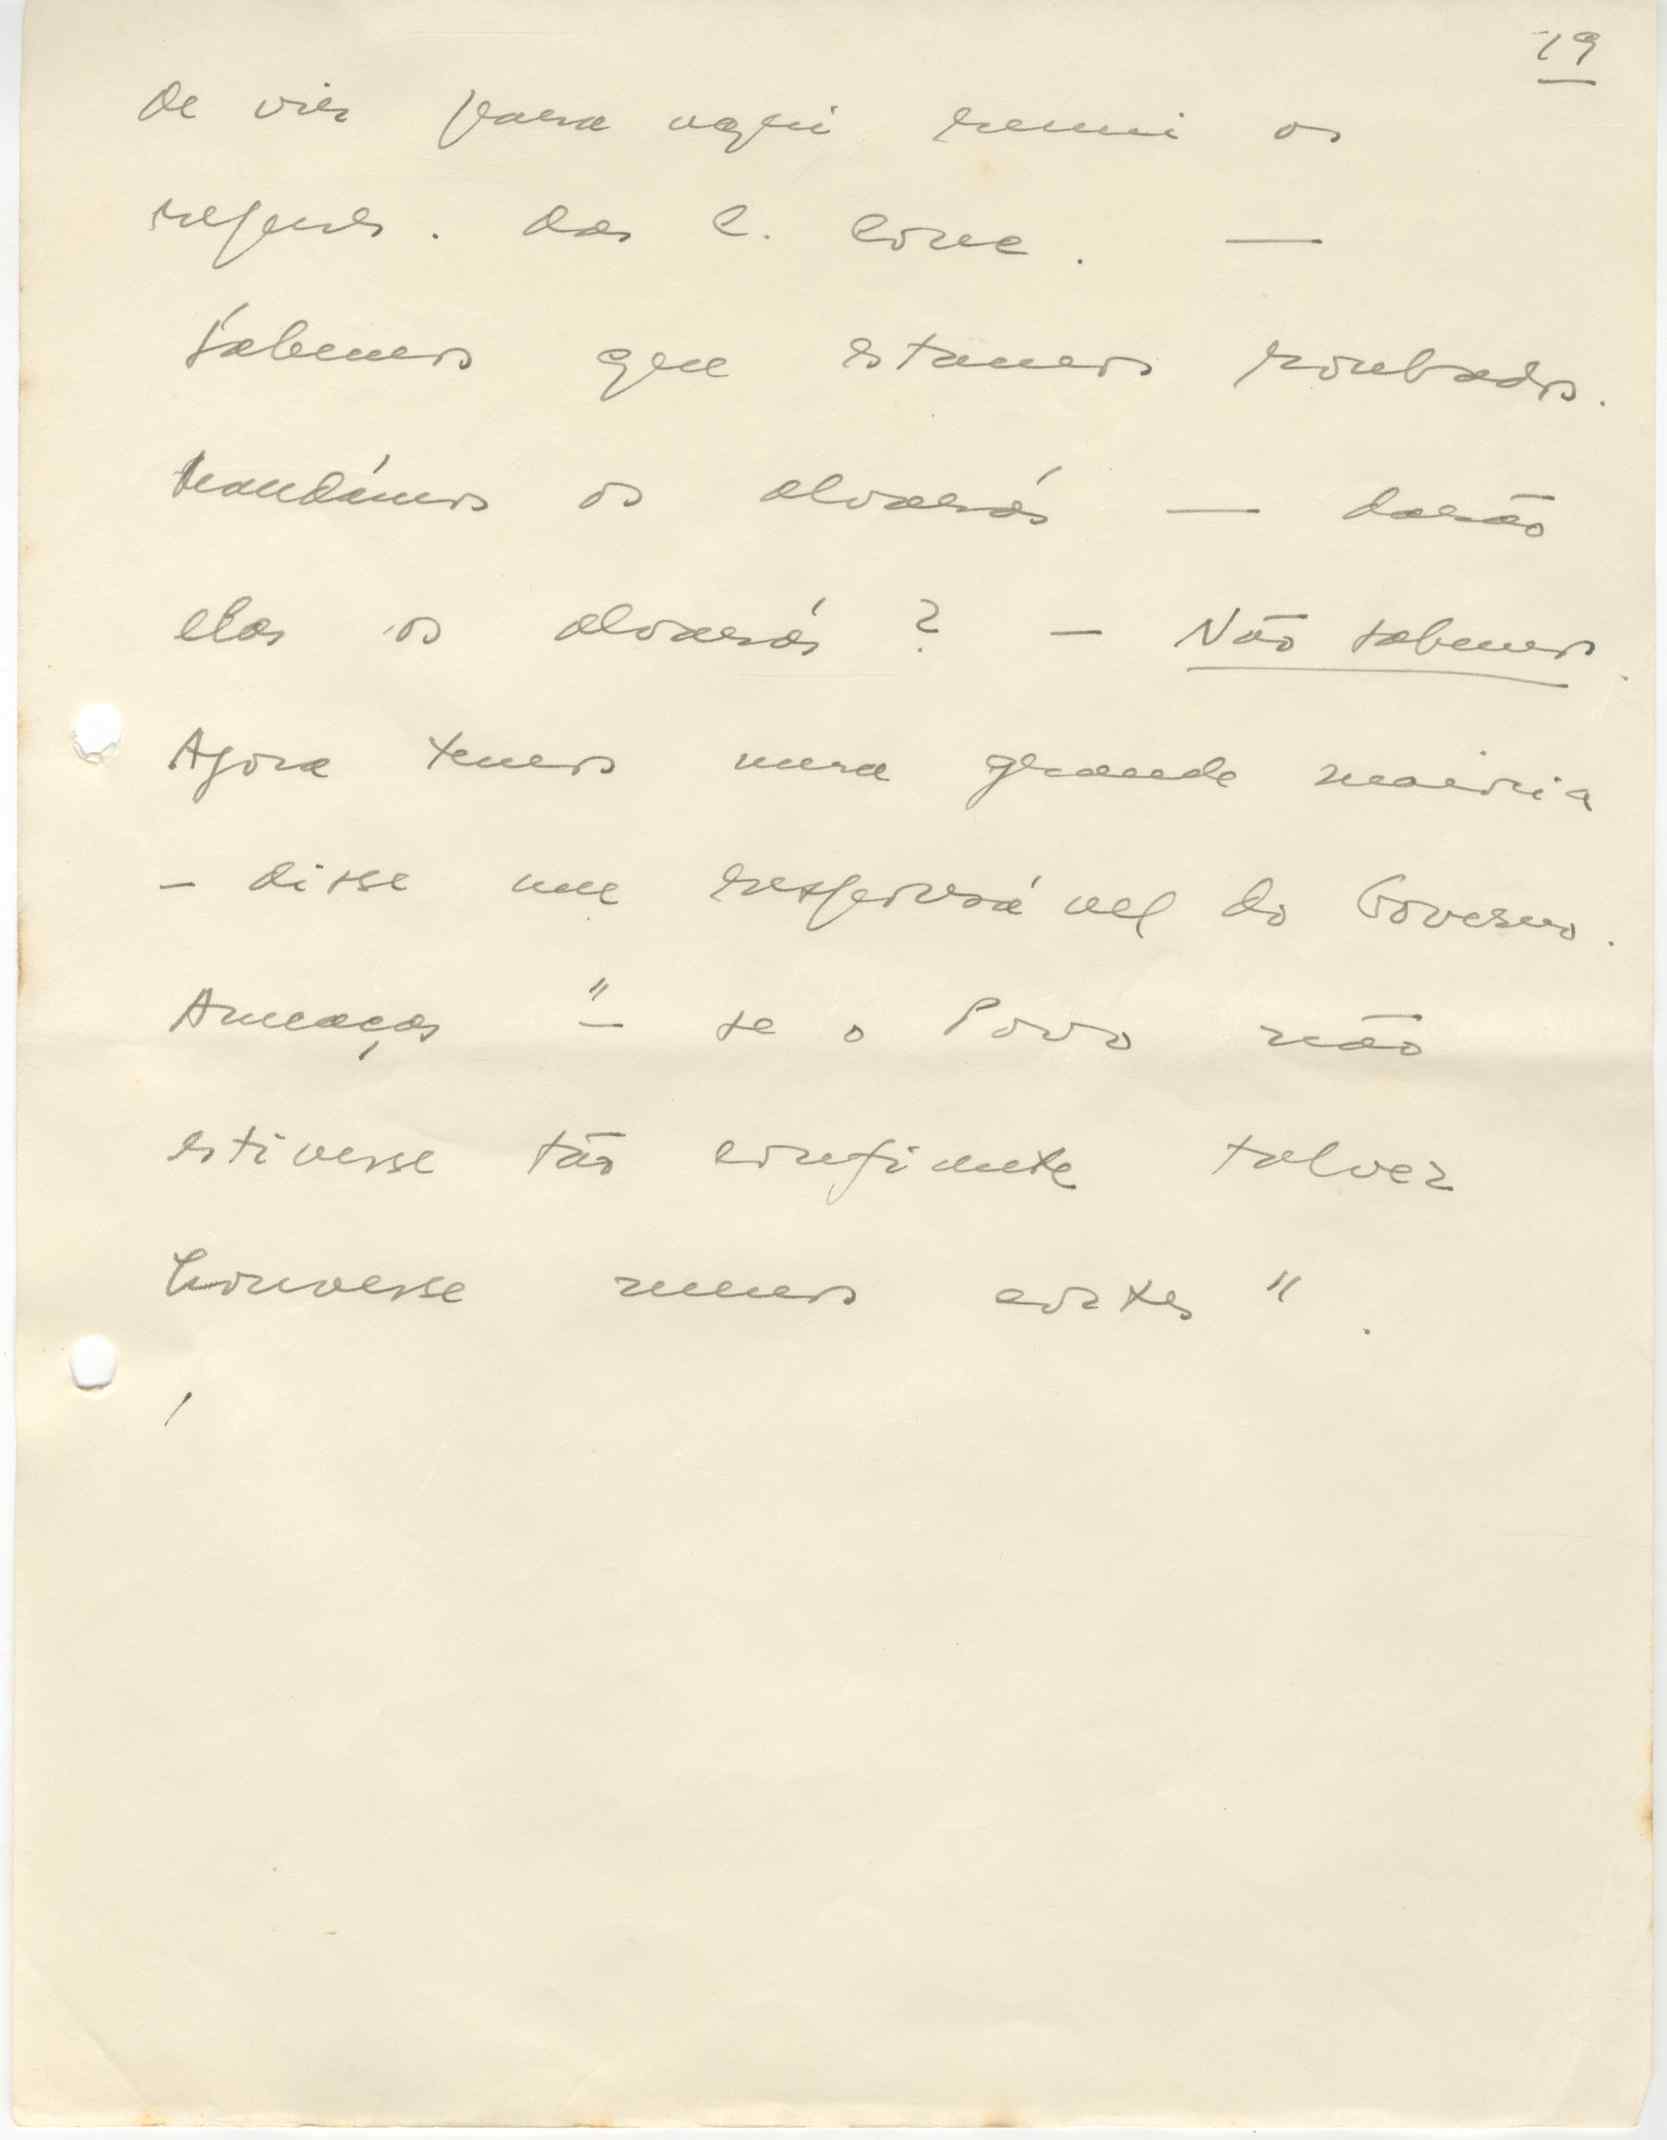 19
de vir para aqui reuni os
respons. das C. Conc. —
Sabemos que estamos roubados.
Mandámos os alvarás — darão
elas os alvarás ? — Não sabemos.
Agora temos uma grande maioria
– disse um responsável do Governo.
Ameaças "– se o Povo não
estivesse tão confiante talvez
houvesse menos cortes ".